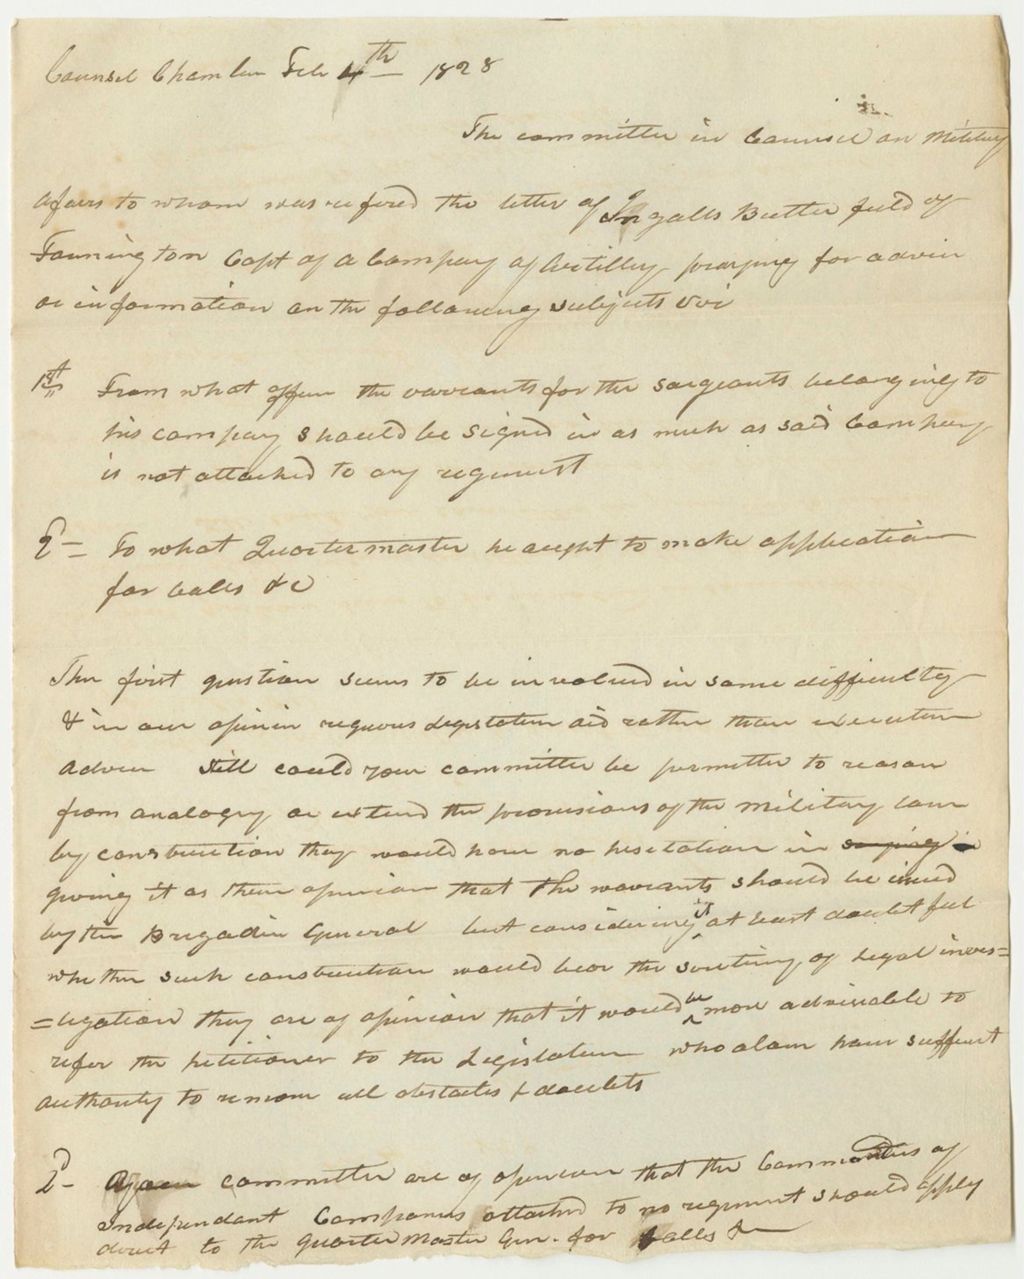 Counsel Chamber Feb 4th 1828
The committee in Counsel on Military
afairs to whom was refered the letter of Ingalls Butterfield of
Farmington Capt of a Company of Artillery praying for advice
or information on the following subjects viz
1st From what officer the warrants for the sargeants belonging to
his company should be signed in as much as said Company
is not attached to any regiment
2 = To what Quarter master he aught to make application
for balls &c
The first question seems to be involved in some difficulty
& in our opinin requires Legislative aid rather than executive
advice Still could your committee be permitted to reason
from analogy or extend the provisions of the military law
by construction they would have no hesitation in saying
giving it as their opinion that the warrants should be issued
by the Brigadier General but considering it at least doubtful
whether such construction would bear the scrutiny of legal inves=
=tigation they are of opinion that it would be more adviseable to
refer the petitioner to the Legislature who alone have sufficient
authority to remove all obstacles & doubts
2d - committee are of openion that the Commanders of
Independant Companies attached to no regiment should apply
direct to the Quarter Master Gen. for Balls &